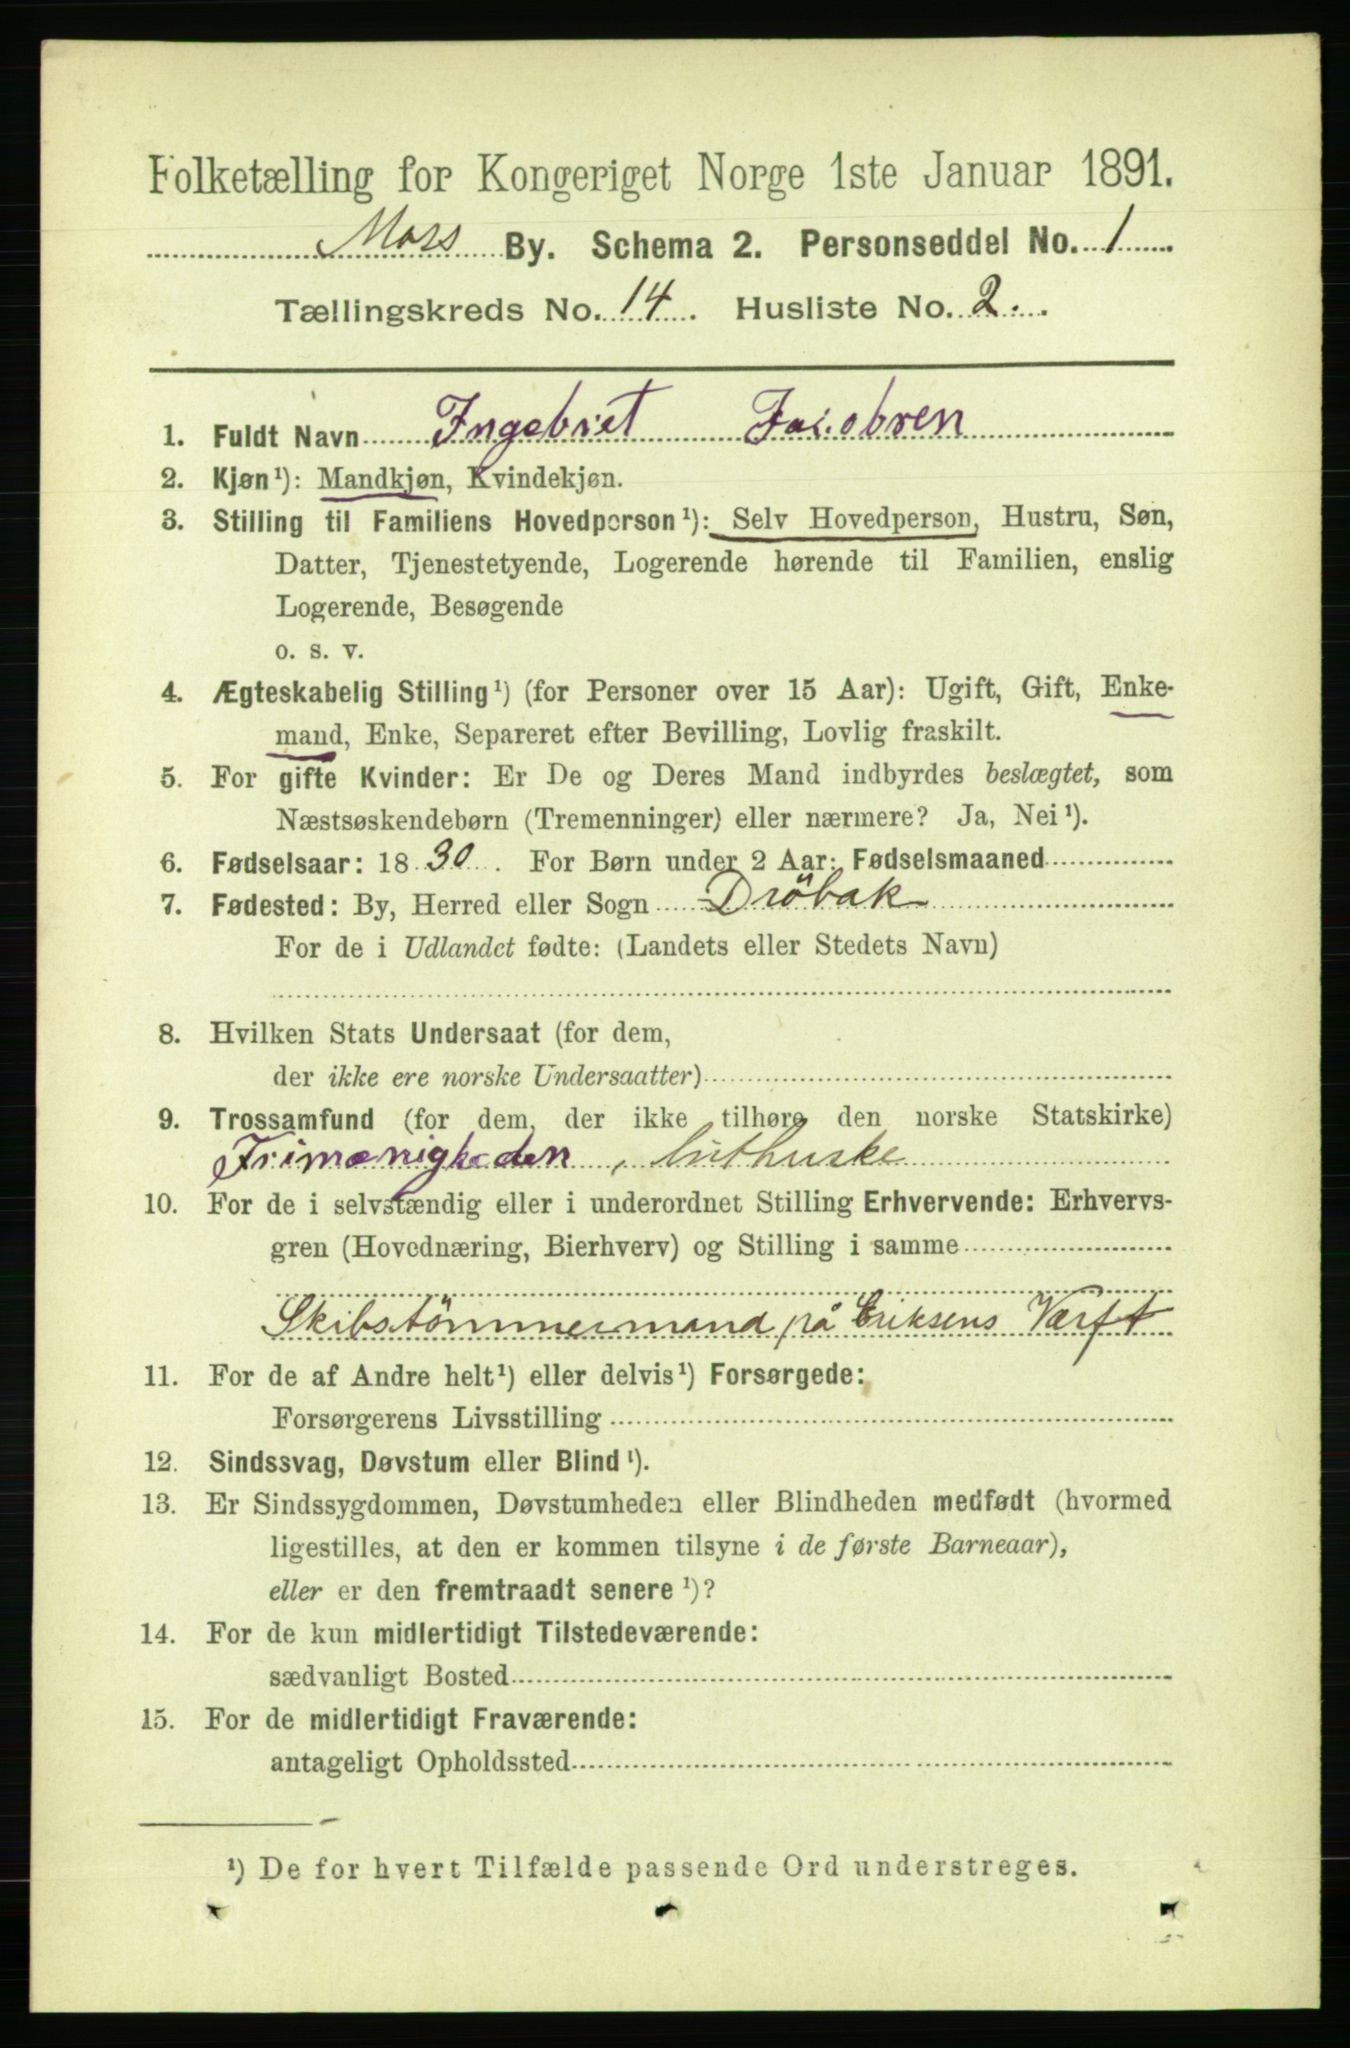 Folketælling for Kongeriget Norge 1ste Januar 1891.
Moss By. Schema 2. Personseddel No. 1
Tællingskreds No. 14. Husliste No. 2.
1. Fuldt Navn Ingebret Jacobsen
2. Kjøn¹): Mandkjøn, Kvindekjøn.
3. Stilling til Familiens Hovedperson¹): Selv Hovedperson, Hustru, Søn,
Datter, Tjenestetyende, Logerende hørende til Familien, enslig
Logerende, Besøgende
o. s. v.
4. Ægteskabelig Stilling¹) (for Personer over 15 Aar): Ugift, Gift, Enke-
mand, Enke, Separeret efter Bevilling, Lovlig fraskilt.
5. For gifte Kvinder: Er De og Deres Mand indbyrdes beslægtet, som
Næstsøskendebørn (Tremenninger) eller nærmere? Ja, Nei¹).
6. Fødselsaar: 1830. For Børn under 2 Aar: Fødselsmaaned
7. Fødested: By, Herred eller Sogn Dröbak
For de i Udlandet fødte: (Landets eller Stedets Navn)
8. Hvilken Stats Undersaat (for dem,
der ikke ere norske Undersaatter)
9. Trossamfund (for dem, der ikke tilhøre den norske Statskirke)
Frimenigheden, luthuske
10. For de i selvstændig eller i underordnet Stilling Erhvervende: Erhvervs-
gren (Hovednæring, Bierhverv) og Stilling i samme
Skibstömmermand på Eriksens Værft
11. For de af Andre helt¹) eller delvis¹) Forsørgede:
Forsørgerens Livsstilling
12. Sindssvag, Døvstum eller Blind¹).
13. Er Sindssygdommen, Døvstumheden eller Blindheden medfødt (hvormed
ligestilles, at den er kommen tilsyne i de første Barneaar),
eller er den fremtraadt senere¹)?
14. For de kun midlertidigt Tilstedeværende:
sædvanligt Bosted
15. For de midlertidigt Fraværende:
antageligt Opholdssted
¹) De for hvert Tilfælde passende Ord understreges.